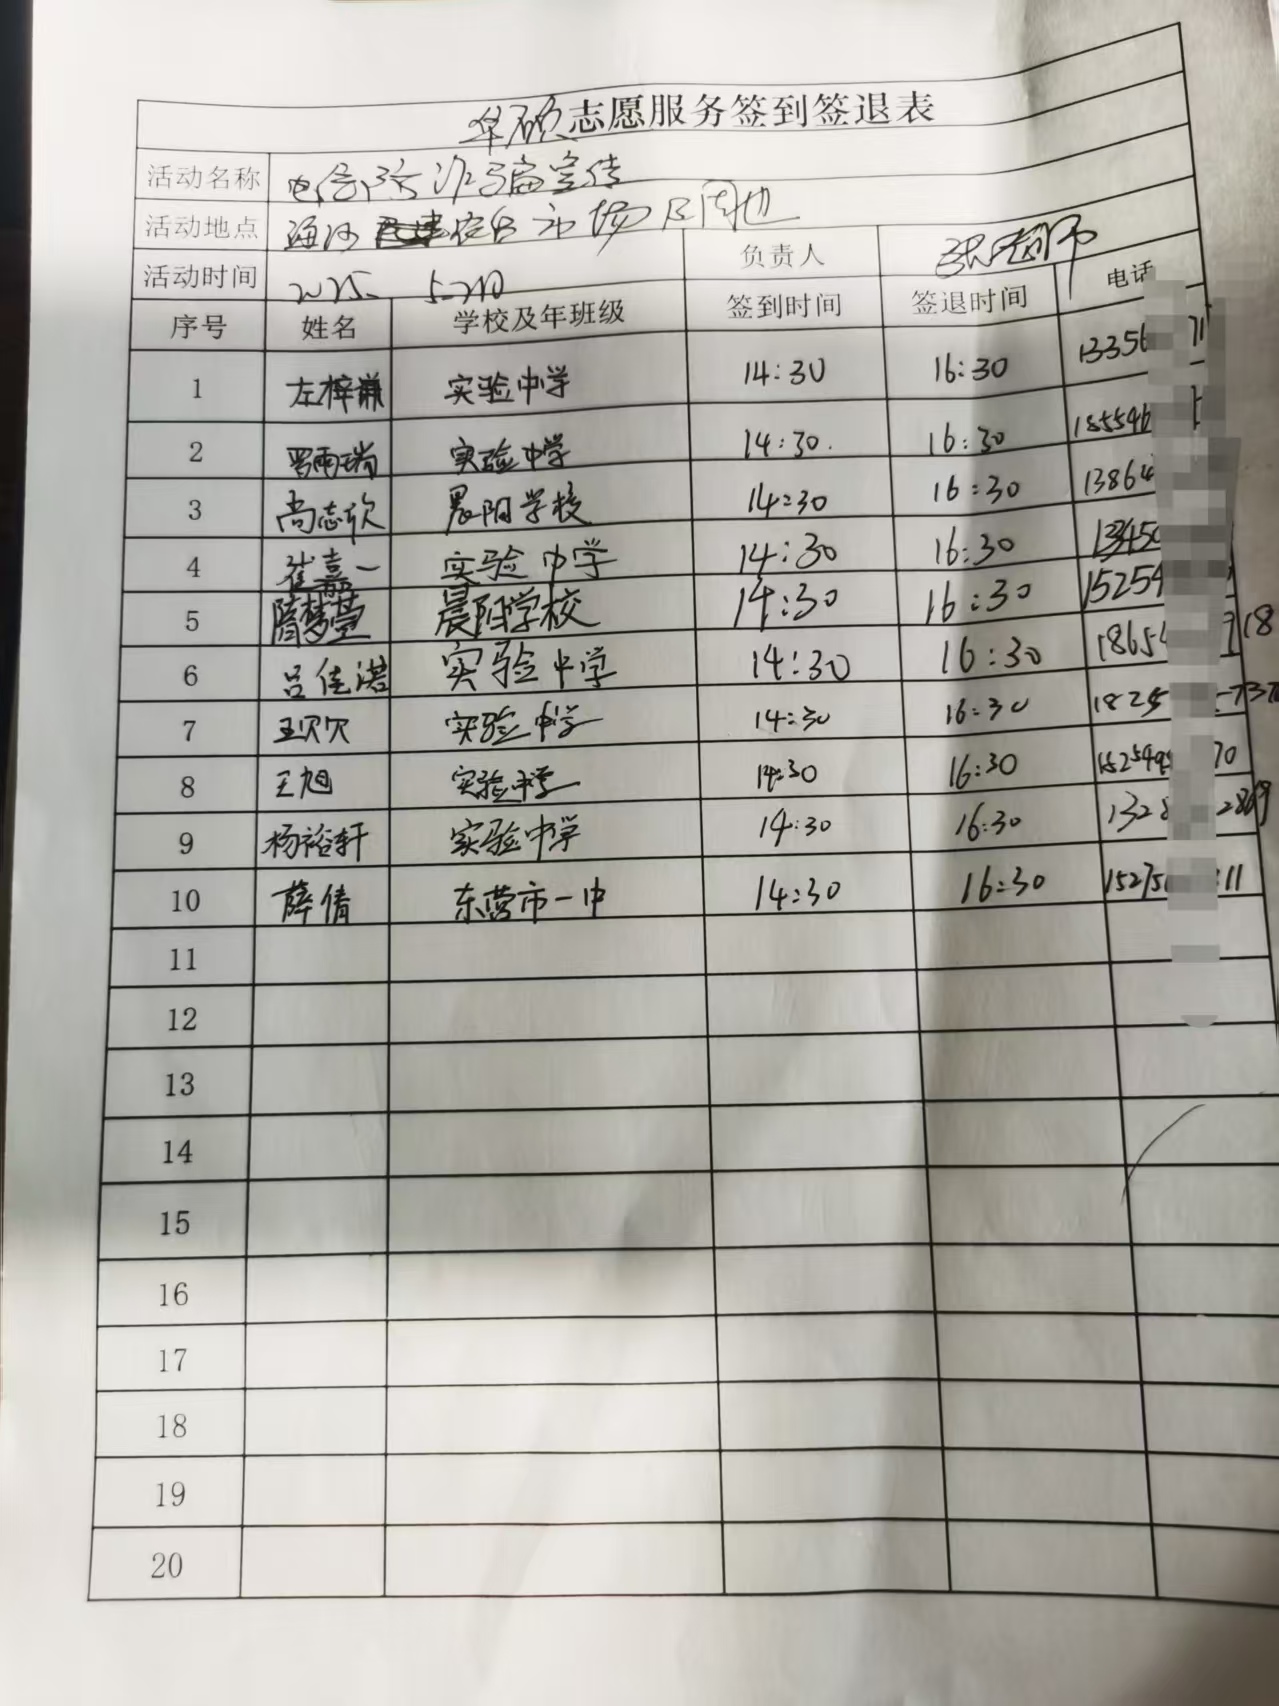 华硕志愿服务签到签退表
活动名称 电信防诈骗宣传
活动地点 海河 市场及周边
活动时间 2025- 负责人
序号 姓名 学校及年班级 签到时间 签退时间 电话
1 左梓谦 实验中学 14:30 16:30 13356
2 罗雨瑞 实验中学 14:30. 16:30 185546
3 尚志欣 晨阳学校 14:30 16:30 13864
4 崔嘉一 实验中学 14:30 16:30 13450
5 隋梦萱 晨阳学校 14:30 16:30 15254
6 吕佳诺 实验中学 14:30 16:30 1865 918
7 王 实验中学 14:30 16:30 1825 737
8 王旭 实验中学 14:30 16:30 1525498 70
9 杨裕轩 实验中学 14:30 16:30 1328 2869
10 薛倩 东营市一中 14:30 16:30 15275 11
11
12
13
14
15
16
17
18
19
20